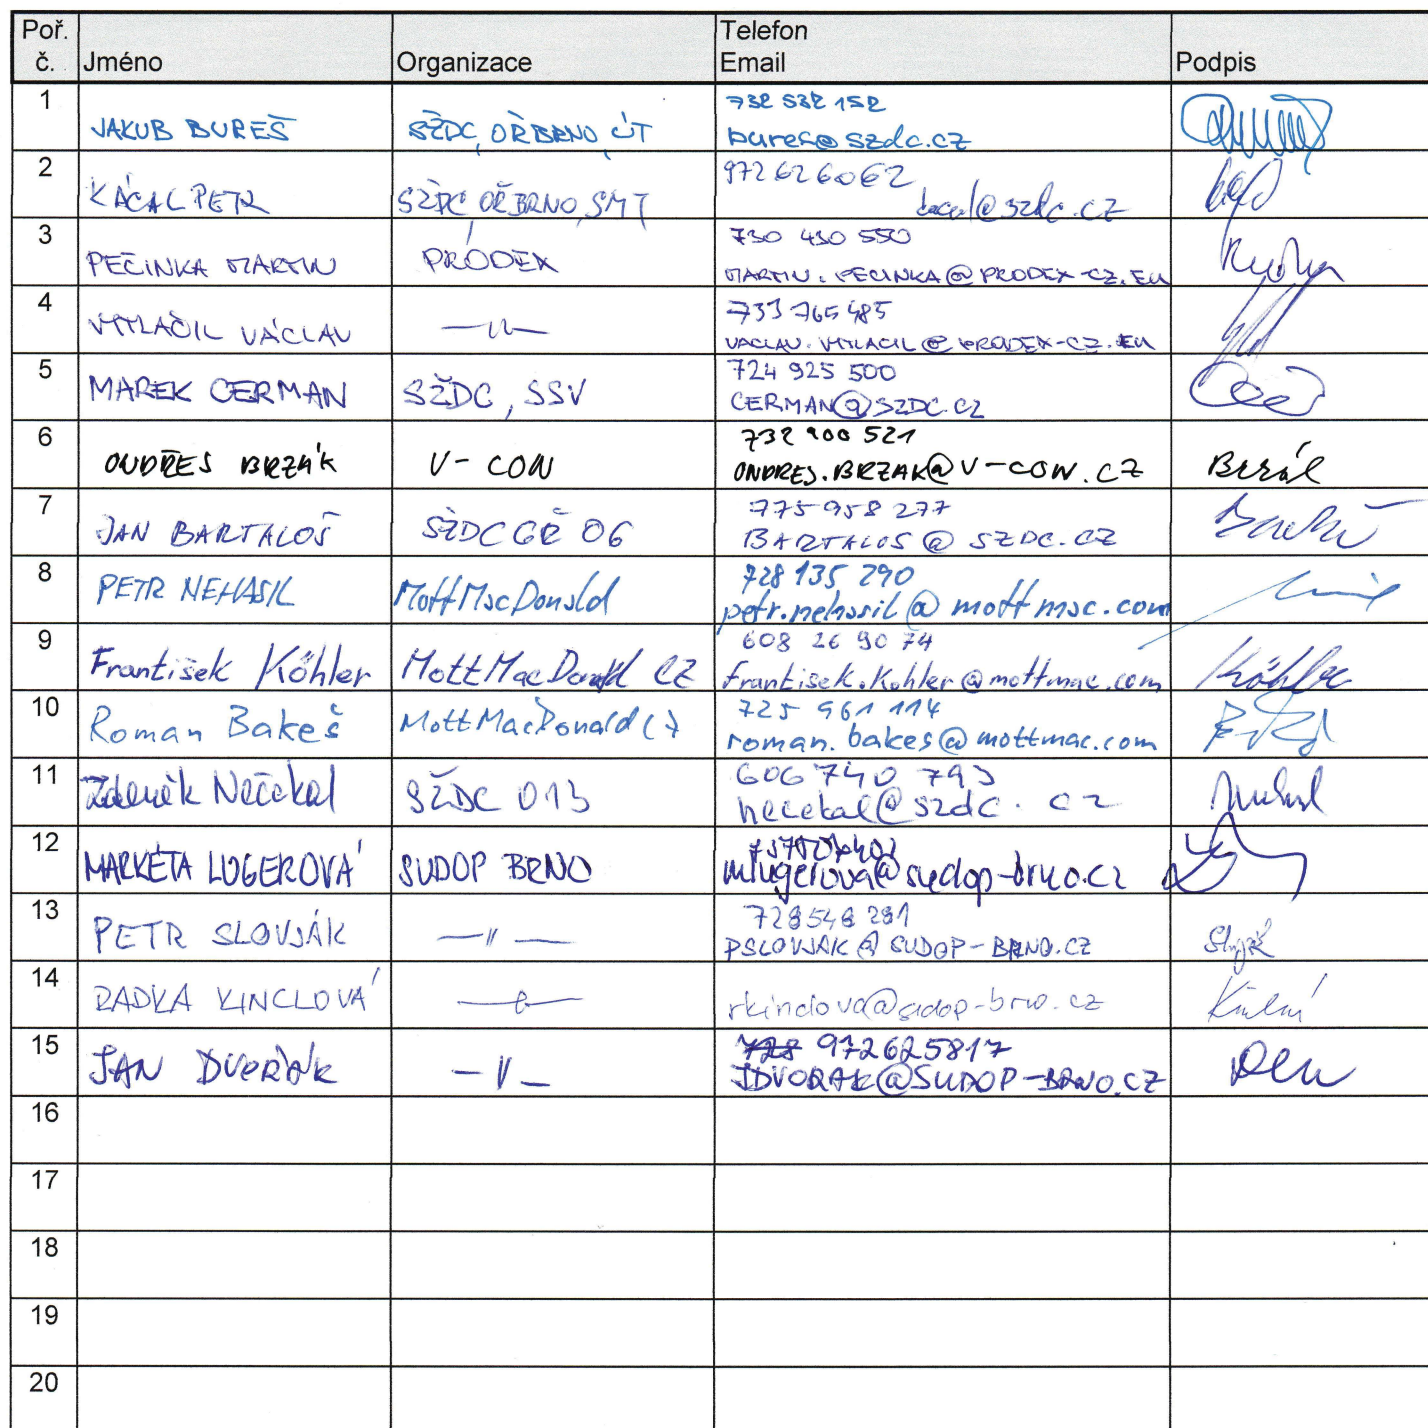 Poř. č. Jméno Organizace Telefon Email Podpis
1 JAKUB BUREŠ SŽDC, OŘ BRNO, ÚT 732 532 152
bures@szdc.cz
2 KÁCAL PETR SŽDC, OŘ BRNO, SMT 972626062
kacal@szdc.cz
3 PEČINKA MARTIN PRODEX 730 430 550
MARTIN.PECINKA@PRODEX-CZ.EU
4 VYTLAČIL VÁCLAV —〃— 733 765 485
VACLAV.VYTLACIL@PRODEX-CZ.EU
5 MAREK CERMAN SŽDC, SSV 724 925 500
CERMAN@SZDC.CZ
6 ONDŘEJ BRZÁK V-CON 732 900 521
ONDREJ.BRZAK@V-CON.CZ Brzák
7 JAN BARTALOŠ SŽDC GŘ O6 775 958 277
BARTALOS@SZDC.CZ
8 PETR NEHASIL MottMacDonald 728 135 290
petr.nehasil@mottmac.com
9 František Köhler MottMacDonald CZ 608 26 90 74
frantisek.kohler@mottmac.com Köhler
10 Roman Bakeš MottMacDonald CZ 725 961 114
roman.bakes@mottmac.com
11 Zdeněk Nečekal SŽDC O13 606 740 793
necekal@szdc.cz
12 MARKÉTA LUGEROVÁ SUDOP BRNO
mlugerova@sudop-brno.cz
13 PETR SLOVJÁK —〃— 728548281
PSLOVJAK@SUDOP-BRNO.CZ
14 RADKA KINCLOVÁ
rkinclova@sudop-brno.cz
15 JAN DVOŘÁK —〃— 728 972625817
JDVORAK@SUDOP-BRNO.CZ
16
17
18
19
20